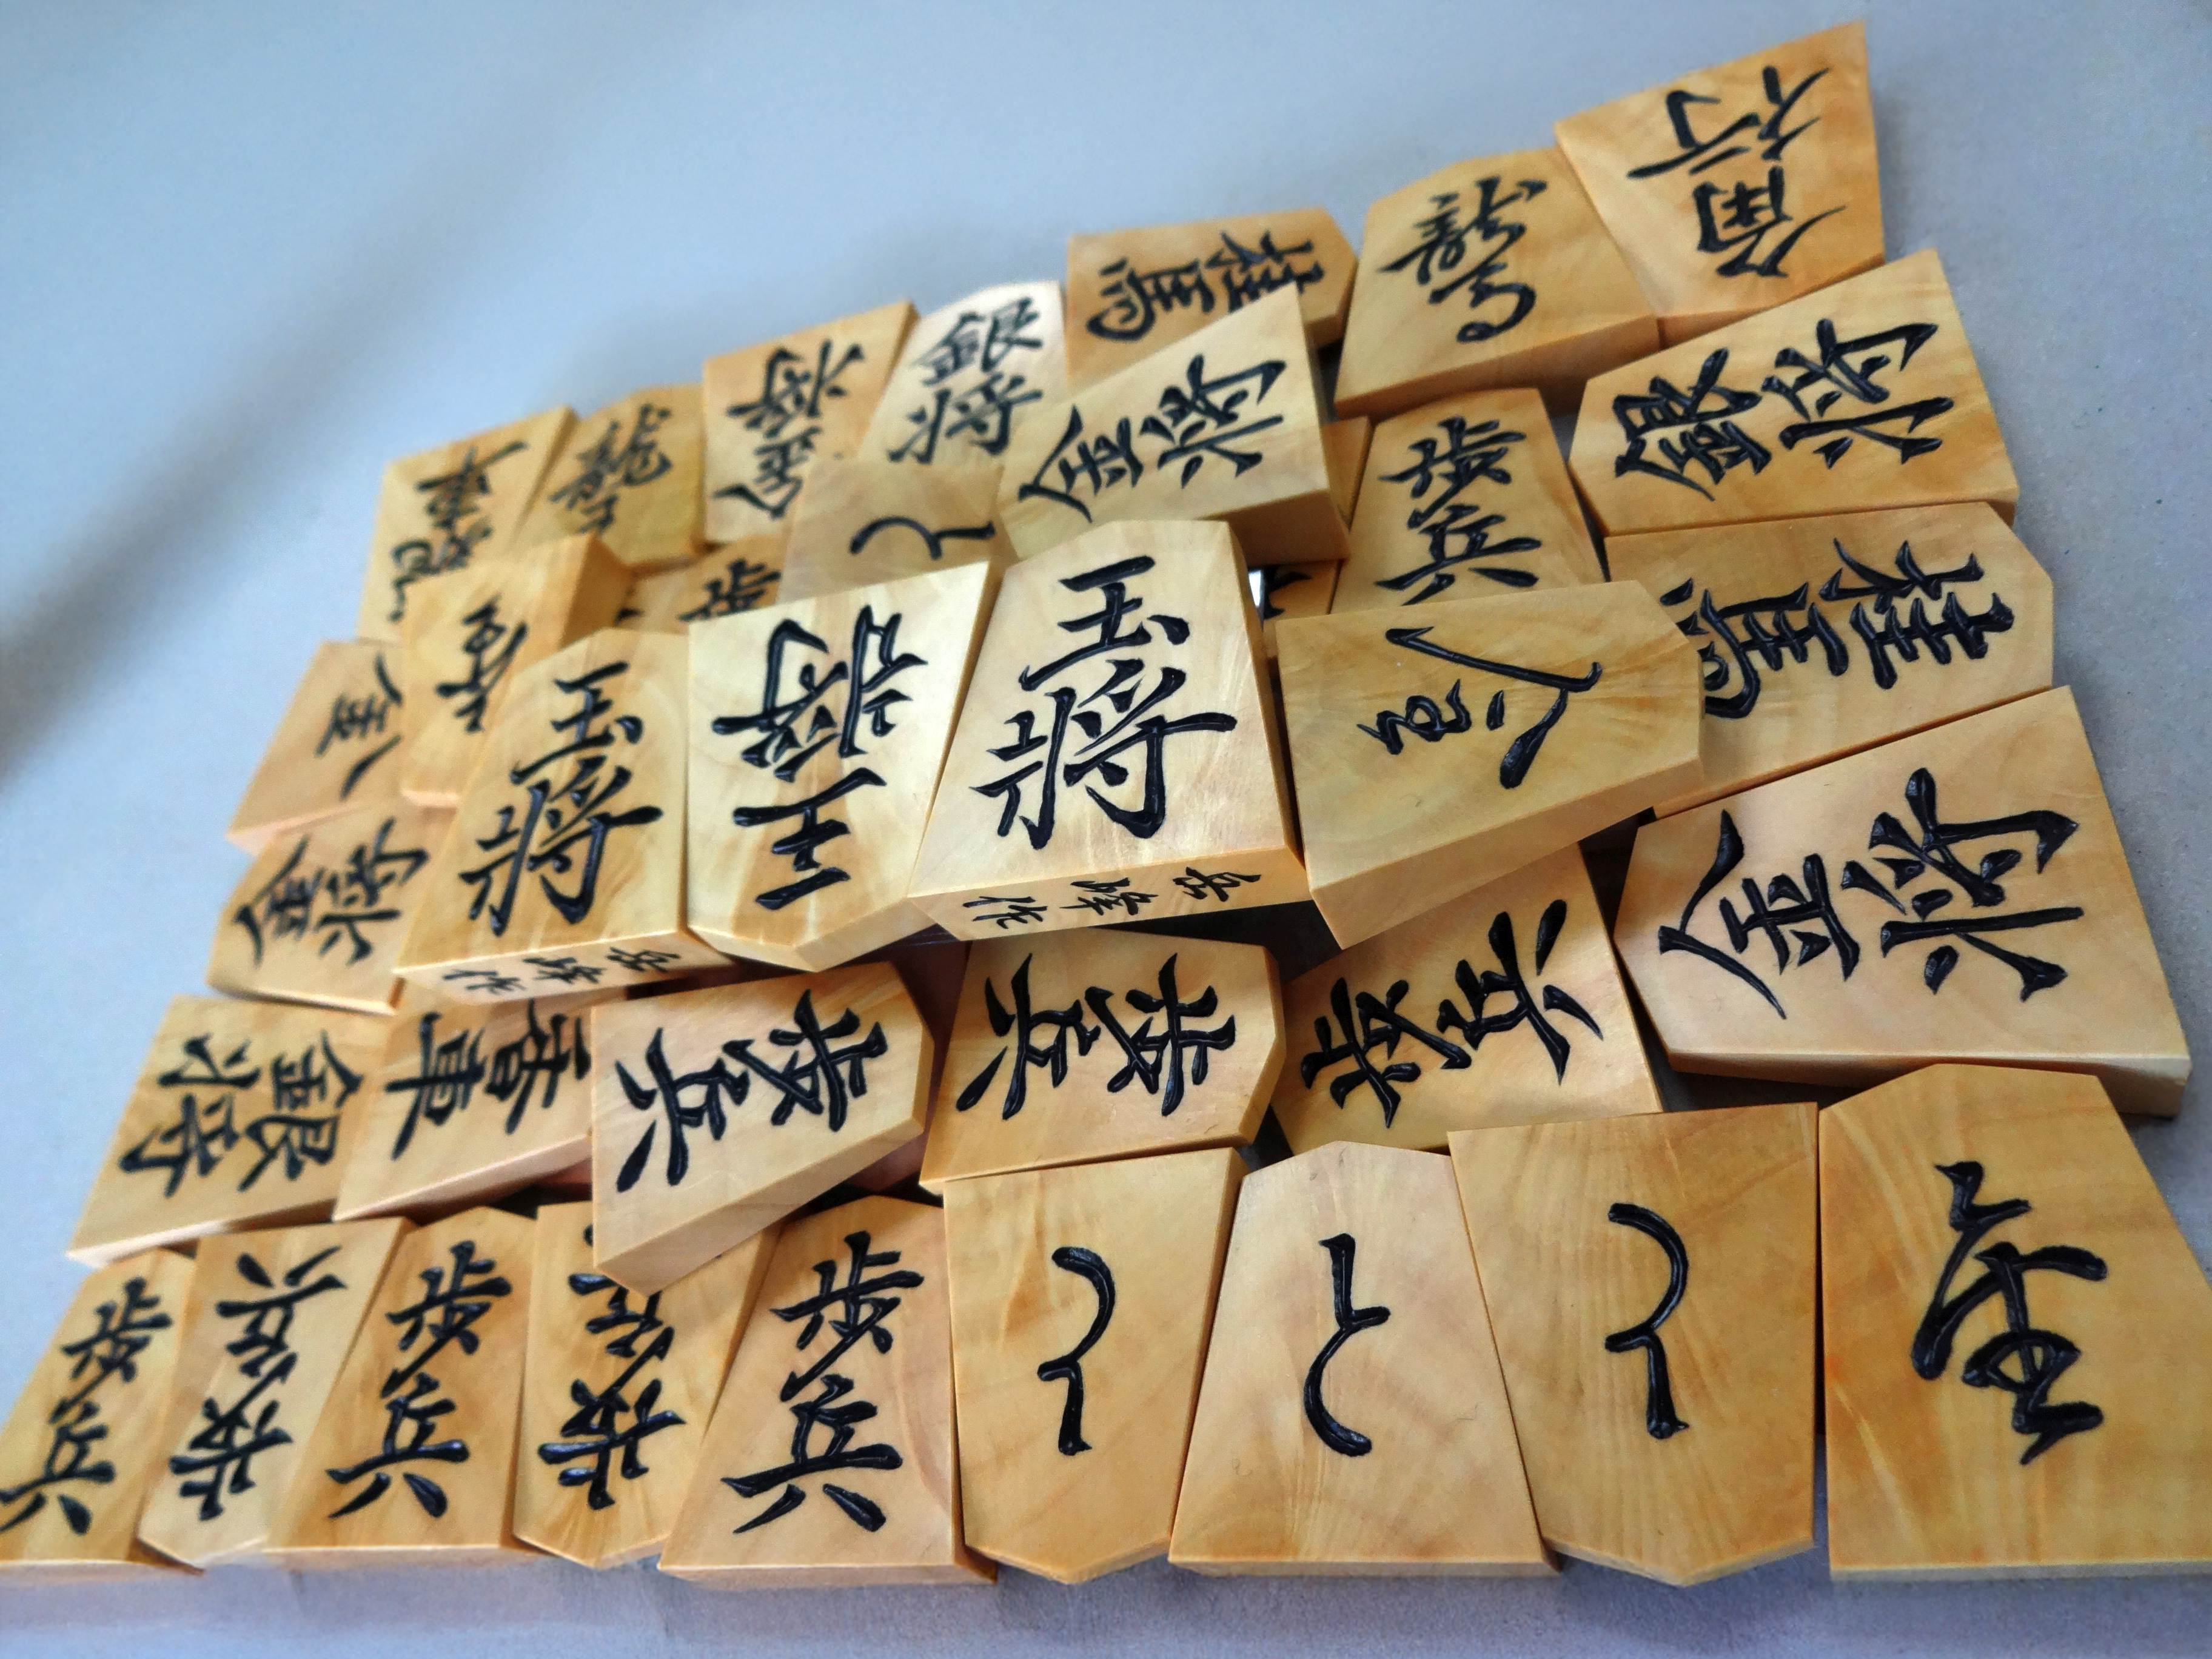 角行
龍馬
桂馬
銀将
金将
龍王
香車
銀将
歩兵
と
歩
桂馬
金
玉将
岳峰作
王将
玉将
岳峰作
金
金将
金将
香車
銀将
歩兵
歩兵
歩兵
歩兵
歩兵
歩兵
歩兵
歩兵
と
と
と